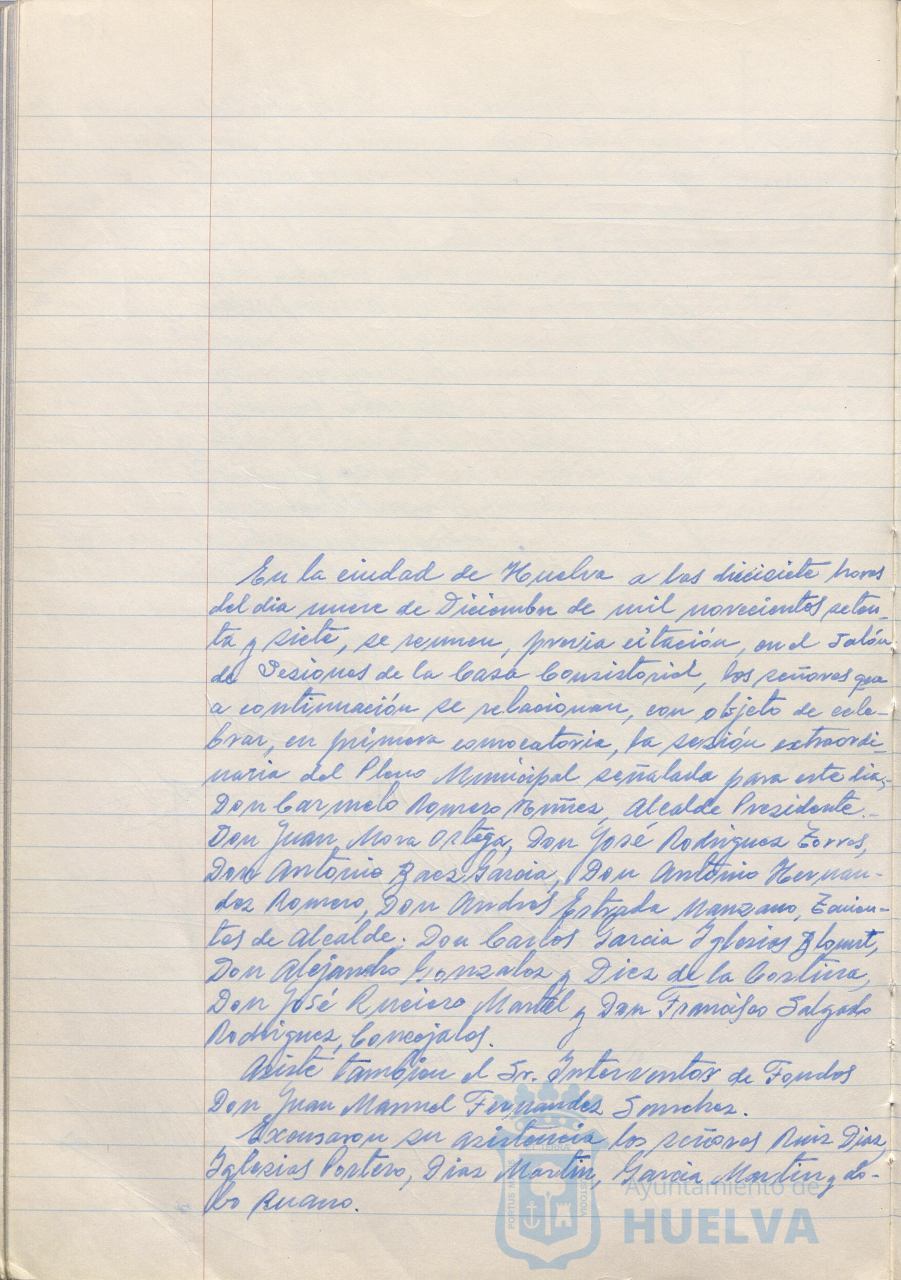 En la ciudad de Huelva a las diecisiete horas
del dia nueve de Diciembre de mil novecientos seten-
ta y siete, se reunen, previa citación, en el Salón
de Sesiones de la Casa Consistorial, los señores que
a continuación se relacionan, con objeto de cele-
brar, en primera convocatoria, la sesión extraordi-
naria del Pleno Municipal señalada para este dia,
Don Carmelo Romero Núñez, Alcalde Presidente.-
Don Juan Mora Ortega, Don José Rodriguez Torres,
Don Antonio Baez Garcia, Don Antonio Hernan-
dez Romero, Don Andrés Estrada Manzano, Tenien-
tes de Alcalde; Don Carlos Garcia Iglesias Blount,
Don Alejandro Gonzalez y Diez de la Cortina,
Don José Rucioro Martel y Don Francisco Salgado
Rodriguez, Concejales.
Asiste tambien el Sr. Interventor de Fondos
Don Juan Manuel Fernandez Sanchez.
Excusaron su asistencia los señores Ruiz Diaz,
Iglesias Portero, Diaz Martin, Garcia Martin y Lo-
bo Ruano.
Ayuntamiento de
HUELVA